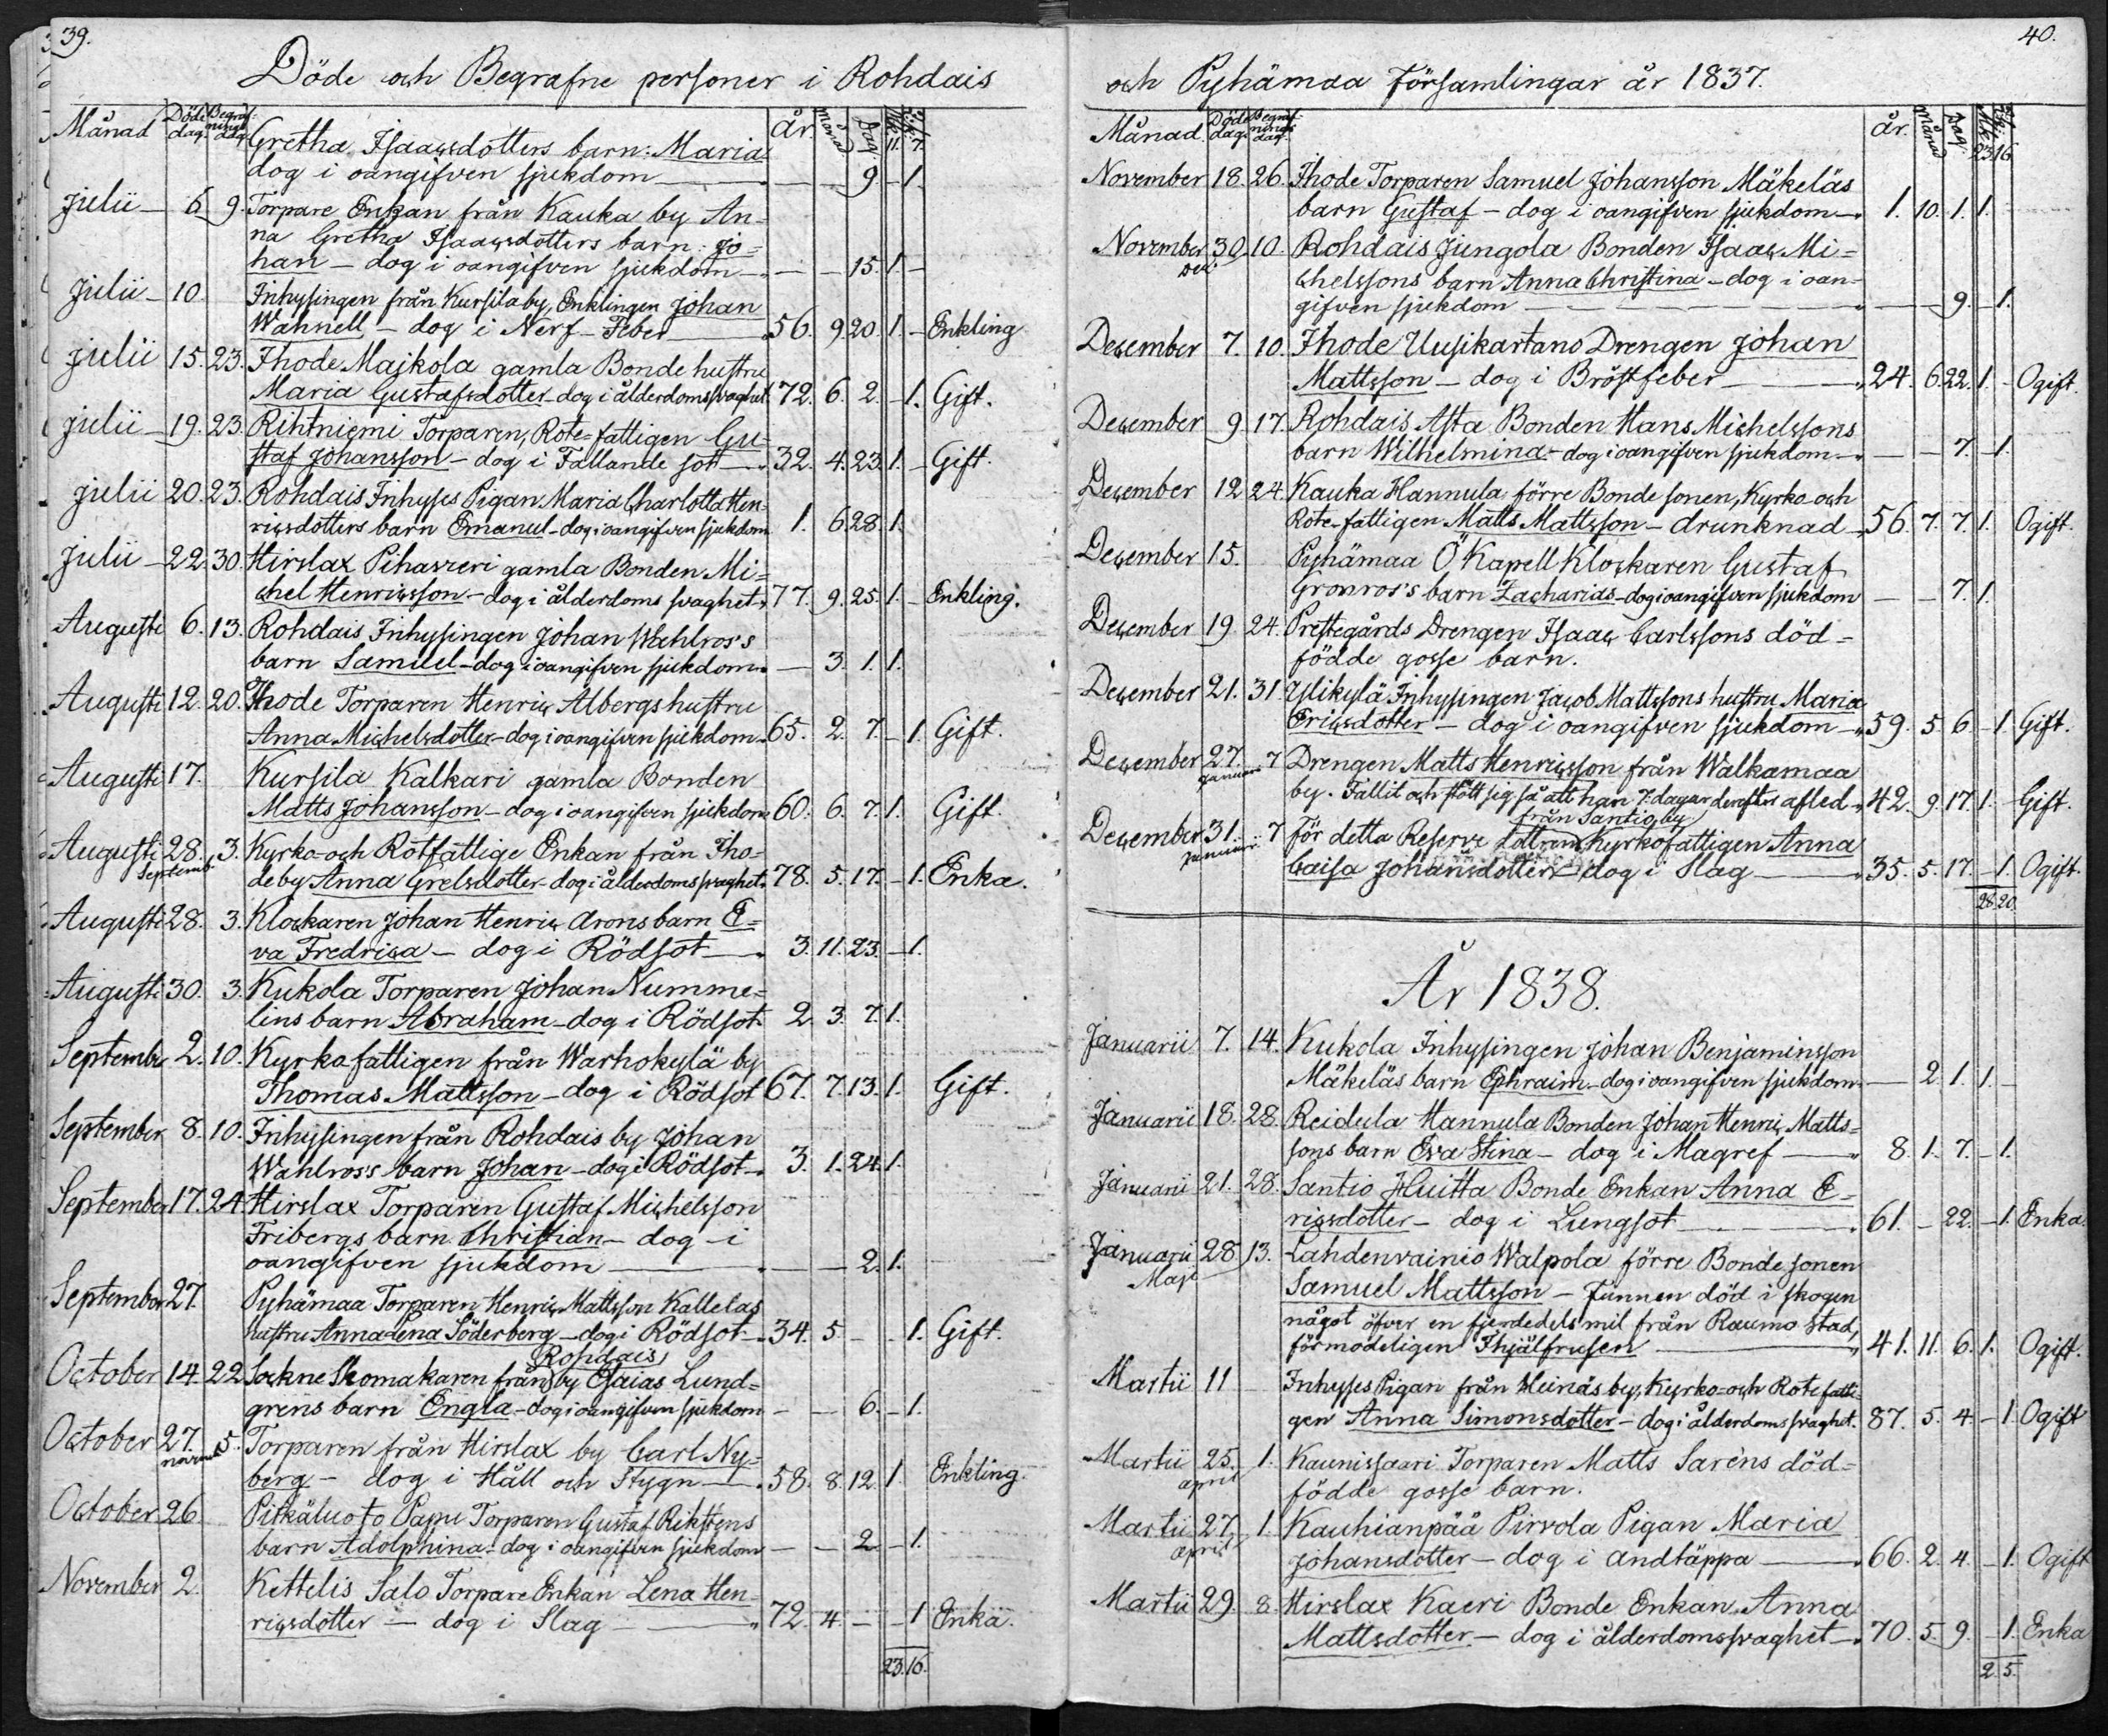 39.
Döde och Begrafne personer i Rohdais
Månad Döds dag. Begrafnings dag. År Månad Dag. Mk. 11. Qk. 7.
Gretha Isaacsdotters barn: Maria
dog i oangifven sjukdom — — — 9 — 1.
Julii — 6. 9. Torpare Enkan från Kauka by An=
na Gretha Isaacsdotters barn: Jo=
han — dog i oangifven sjukdom — — — 15. 1. —
Julii — 10. Inhysingen från Kursila by, Enklingen Johan
Wahnell — dog i Nerf-Feber — 56. 9. 20. 1. — Enkling
Julii 15. 23. Ihode Majkola gamla Bonde hustru
Maria Gustafsdotter — dog i ålderdomssvaghet 72. 6. 2. — 1. Gift.
Julii — 19. 23. Rihtniemi Torparen, Rote=fattigen Gu=
staf Johansson — dog i Fallande sot — 32. 4. 23. 1. — Gift.
Julii 20. 23. Rohdais Inhyses Pigan Maria Charlotta Hen=
ricsdotters barn Emanuel — dog i oangifven sjukdom 1. 6. 28. 1.
Julii — 22. 30. Hirslax Pihavieri gamla Bonden Mi=
chel Henricsson — dog i ålderdoms svaghet 77. 9. 25. 1. — Enkling.
Augusti 6. 13. Rohdais Inhysingen Johan Wahlros's
barn Samuel — dog i oangifven sjukdom — 3. 1. 1.
Augusti 12. 20. Ihode Torparen Henric Albergs hustru
Anna Michelsdotter — dog i oangifven sjukdom 65. 2. 7. — 1. Gift.
Augusti 17. Kursila Kalkari gamla Bonden
Matts Johansson — dog i oangifven sjukdom 60. 6. 7. 1. Gift.
Augusti 28. 3. Kyrko= och Rotfattige Enkan från Iho=
Septemb. de by Anna Grelsdotter — dog i ålderdomssvaghet 78. 5. 17. — 1. Enka.
Augusti 28. 3. Klockaren Johan Henric Arons barn E=
va Fredrica — dog i Rödsot — 3. 11. 23. — 1.
Augusti 30. 3. Kukola Torparen Johan Numme=
lins barn Abraham — dog i Rödsot 2. 3. 7. 1.
Septembr 2. 10. Kyrkofattigen från Warhokylä by
Thomas Mattsson — dog i Rödsot 67. 7. 13. 1. Gift.
September 8. 10. Inhysingen från Rohdais by Johan
Wahlros's barn Johan — dog i Rödsot 3. 1. 24. 1.
September 17. 24. Hirslax Torparen Gustaf Michelsson
Fribergs barn Christian — dog i
oangifven sjukdom — — — 2. 1.
September 27. Pyhämaa Torparen Henric Mattsson Kallelas
hustru Anna Lena Söderberg — dog i Rödsot 34. 5. — — 1. Gift.
October 14. 22. Sockne Skomakaren från Rohdais by Esaias Lund=
grens barn Engla — dog i oangifven sjukdom — — 6. — 1.
October 27. 5. Torparen från Hirslax by Carl Ny=
novemb berg — dog i Håll och Stygn — 58. 8. 12. 1. Enkling.
October 26. Pitkäluoto Papu Torparen Gustaf Rikstens
barn Adolphina — dog i oangifven sjukdom — — 2 — 1.
November 2. Kettelis Salo Torpare Enkan Lena Hen
ricsdotter — dog i Slag — 72. 4. — — 1 Enka.
23. 16.
40.
och Pyhämaa Församlingar år 1837.
Månad Döds dag. Begrafnings dag. År. Månad Dag. Mk. 23. Qk. 16.
November 18. 26. Ihode Torparen Samuel Johansson Mäkeläs
barn Gustaf — dog i oangifven sjukdom — 1. 10. 1. 1.
November 30. 10. Rohdais Jungola Bonden Isaac Mi=
Dec. chelssons barn Anna Christina — dog i oan=
gifven sjukdom — — — 9. — 1.
December 7. 10. Ihode Uusikartano Drengen Johan
Mattsson — dog i Bröstfeber — 24. 6. 22. 1. — Ogift.
December 9. 17. Rohdais Asta Bonden Hans Michelssons
barn Wilhelmina — dog i oangifven sjukdom — — 7. — 1.
December 12 24. Kauka Hannula förre Bonde sonen, Kyrko och
Rote-fattigen Matts Mattsson — drunknad 56. 7. 7. 1. Ogift.
December 15. Pyhämaa Ö Kapell Klockaren Gustaf
Gronros's barn Zacharias — dog i oangifven sjukdom — — 7. 1.
December 19 24. Prestegårds Drengen Isaac Carlssons död=
födde gosse barn.
December 21. 31. Ylikylä Inhysingen Jacob Mattssons hustru Maria
Ericsdotter — dog i oangifven sjukdom 59. 5 6 — 1. Gift.
December 27. 7 Drengen Matts Henricsson från Walkamaa
Januari by. Fallit och stött sig så att han 7. dagar derefter afled 42. 9. 17. 1. Gift.
från Santio by
December 31. 7 För detta Reserve Kyrkofattigen Anna
Januari Caisa Johansdotter dog i Slag — 35. 5. 17. — 1. Ogift.
28. 20.
År 1838.
Januarii 7. 14. Kukola Inhysingen Johan Benjaminsson
Mäkeläs barn Ephraim — dog i oangifven sjukdom — 2. 1. 1. —
Januarii 18. 28. Reidula Hannula Bonden Johan Henric Matts=
sons barn Eva Stina — dog i Magref — 8. 1. 7. — 1.
Januarii 21. 28. Santio Huitta Bonde Enkan Anna E=
ricsdotter — dog i Lungsot — 61. — 22. — 1. Enka.
Januarii 28 13. Lahdenvainio Walpola förre Bonde sonen
Maji Samuel Mattsson — Funnen död i skogen
något öfver en fjerdedels mil från Raumo Stad,
förmodeligen Ihjälfrusen — 41. 11. 6. 1. Ogift.
Martii 11 Inhyses Pigan från Heinäs by, Kyrko= och Rotefatti=
gen Anna Simonsdotter — dog i ålderdomssvaghet. 87. 5. 4 — 1 Ogift
Martii 25. 1. Kaunissaari Torparen Matts Sarens död=
april födde gosse barn.
Martii 27. 1. Kauhianpää Pirvola Pigan Maria
april Johansdotter — dog i andtäppa — 66. 2. 4. — 1. Ogift
Martii 29. 8. Hirslax Kaeri Bonde Enkan Anna
Mattsdotter — dog i ålderdomssvaghet — 70. 5. 9. — 1. Enka
2. 5.